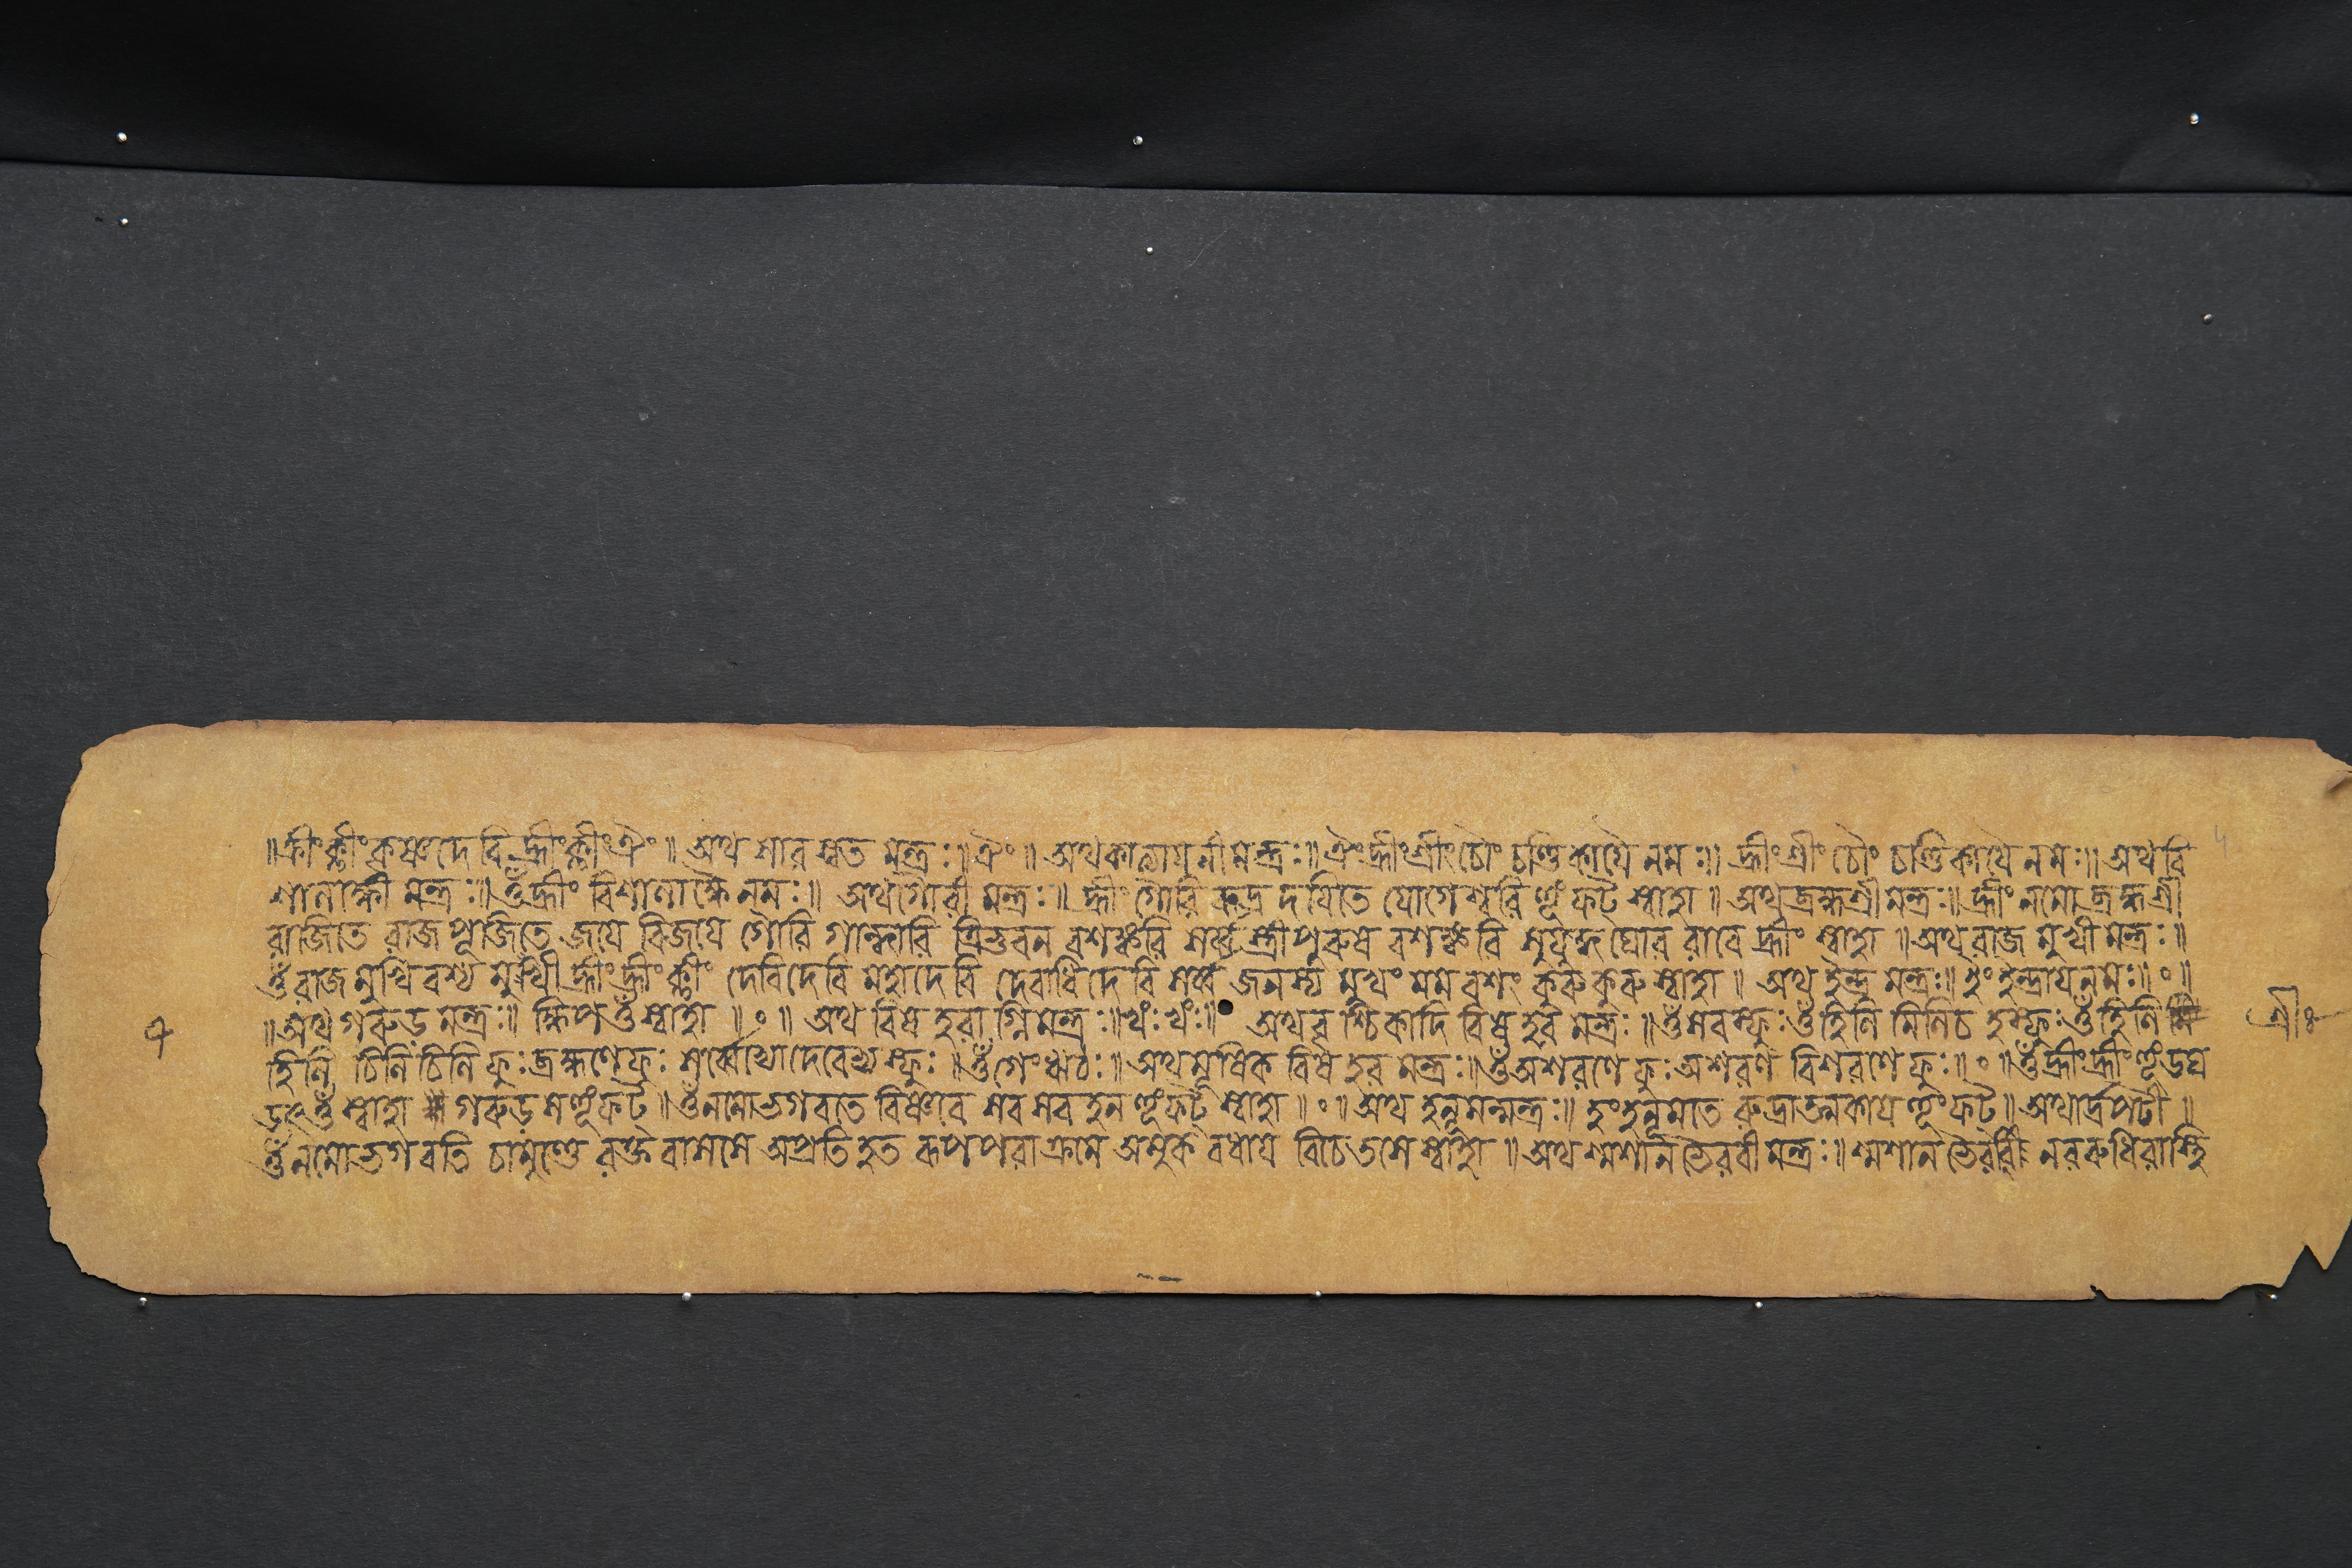 ॥ह्रीं क्लीं कृष्णदेवि ह्रीं क्लीं ऐं॥ অথ সারস্বত মন্ত্রঃ॥ঐং॥ অথ কাত্যায়নী মন্ত্রঃ॥ ঐং হ্রীং শ্রীং চৌং চণ্ডিকায়ৈ নমঃ॥ হ্রীং শ্রীং চৌং চণ্ডিকায়ৈ নমঃ॥ অথ বি
শালাক্ষী মন্ত্রঃ॥ ওঁ হ্রীং বিশালাক্ষ্যৈ নমঃ॥ অথ গৌরী মন্ত্রঃ॥ হ্রীং গৌরি রুদ্র দয়িতে যোগেশ্বরি হূঁ ফট্ স্বাহা॥ অথ ব্রহ্মশ্রী মন্ত্রঃ॥ হ্রীং নমো ব্রহ্মশ্রী
রাজিতে রাজ পূজিতে জয়ে বিজয়ে গৌরি গান্ধারি ত্রিভুবন বশঙ্করি সর্ব্ব স্ত্রী পুরুষ বশঙ্করি ঘোর রাবে হ্রীং স্বাহা॥ অথ রাজ মুখী মন্ত্রঃ॥
ওঁ রাজ মুখি বশ্য মুখী হ্রীং হ্রীং ক্লীং দেবি দেবি মহাদেবি দেবাধিদেবি সর্ব্ব জনস্য মুখং মম বশং কুরু কুরু স্বাহা॥ অথ ইন্দ্র মন্ত্রঃ॥ ইং ইন্দ্রায় নমঃ॥০॥
॥অথ গরুড় মন্ত্রঃ॥ ক্ষিপ ওঁ স্বাহা॥০॥ অথ বিষ হরাগ্নি মন্ত্রঃ॥ খঁঃ খঁঃ॥ অথ বৃশ্চিকাদি বিষ হর মন্ত্রঃ॥ ওঁ হিনি মিনি ওঁ হিনি
হিনি চিনি চিনি ফুঃ ব্রহ্মণে ফুঃ সর্ব্বেভ্যো দেবেভ্যঃ ফুঃ॥ ওঁ গেং ঋঁ ঠঃ॥ অথ মূষিক বিষ হর মন্ত্রঃ॥ ওঁ অশরণে ফুঃ অশরণ বিশরণে ফুঃ॥০॥ ওঁ হ্রীং হ্রীং হূঁ
ওঁ স্বাহা গরুড় হূঁ ফট্॥ ওঁ নমো ভগবতে বিষ্ণবে সর সর হন হূঁ ফট্ স্বাহা॥০॥ অথ হনূমন্মন্ত্রঃ॥ হং হনূমতে রুদ্রাত্মকায় হূঁ ফট্॥ অথার্দ্রপটী॥
ওঁ নমো ভগবতি চামুণ্ডে রক্ত বাসসে অপ্রতি হত রূপ পরাক্রমে অমুক বধায় বিচেতসে স্বাহা॥ অথ শ্মশান ভৈরবী মন্ত্রঃ॥ শ্মশান ভৈরবি নর রুধিরাস্থি
৭
শ্রীঃ